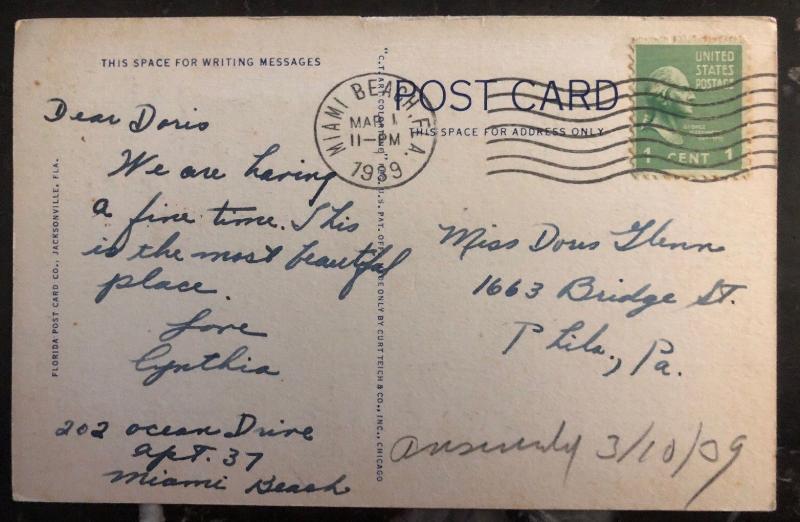 THIS SPACE FOR WRITING MESSAGES
Dear Doris
We are having
a fine time. This
is the most beautiful
place.
Love
Cynthia
202 ocean Drive
apt. 37
Miami Beach
FLORIDA POST CARD CO., JACKSONVILLE, FLA.
"C.T. ART COLORTONE" REG. U.S. PAT. OFF. MADE ONLY BY CURT TEICH & CO., INC., CHICAGO
POST CARD
THIS SPACE FOR ADDRESS ONLY
MIAMI BEACH, FLA.
MAR 1
11-PM
1939
UNITED
STATES
POSTAGE
GEORGE
1 CENT 1
Miss Doris Glenn
1663 Bridge St.
Phila., Pa.
3/10/39